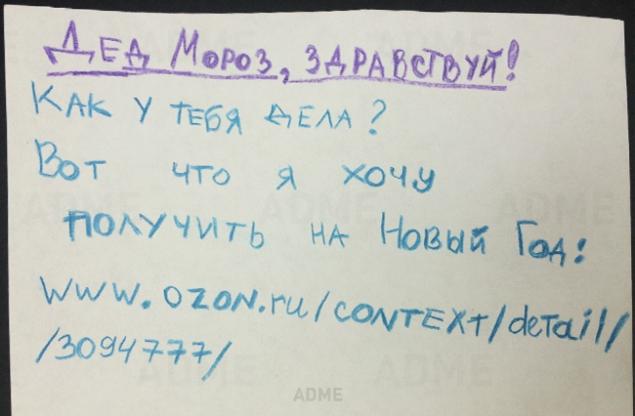 Дед Мороз, здравствуй!
Как у тебя дела?
Вот что я хочу
получить на Новый Год:
www.ozon.ru/context/detail/
/3094777/
ADME